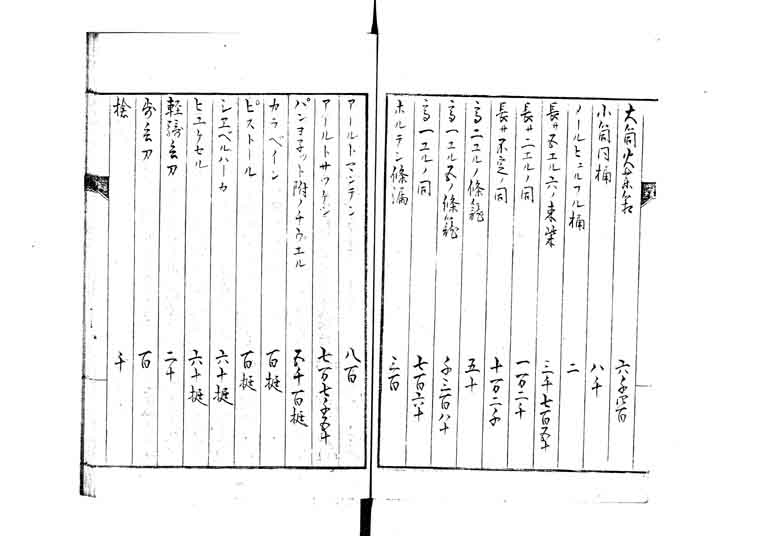 大筒火薬筥 六千四百
小筒同桶 八千
ノールヒュルフル桶 二
長サ五エル六ノ束柴 三千七百五十
長サ二エルノ同 一万二千
長サ不定ノ同 十万二千
高二エルノ條籠 五十
高一エル五ノ條籠 千三百八十
高一エルノ同 七百六十
ホルテン條漏 三百
アールトマンテン 八百
アールトサックゲン 七万七千五十
バンヨネット附ノチウエル 五千百挺
カラベイン 百挺
ピストール 百挺
シエベルハーカ 六十挺
ヒユケセル 六十挺
軽騎兵刀 二千
歩兵刀 百
槍 千